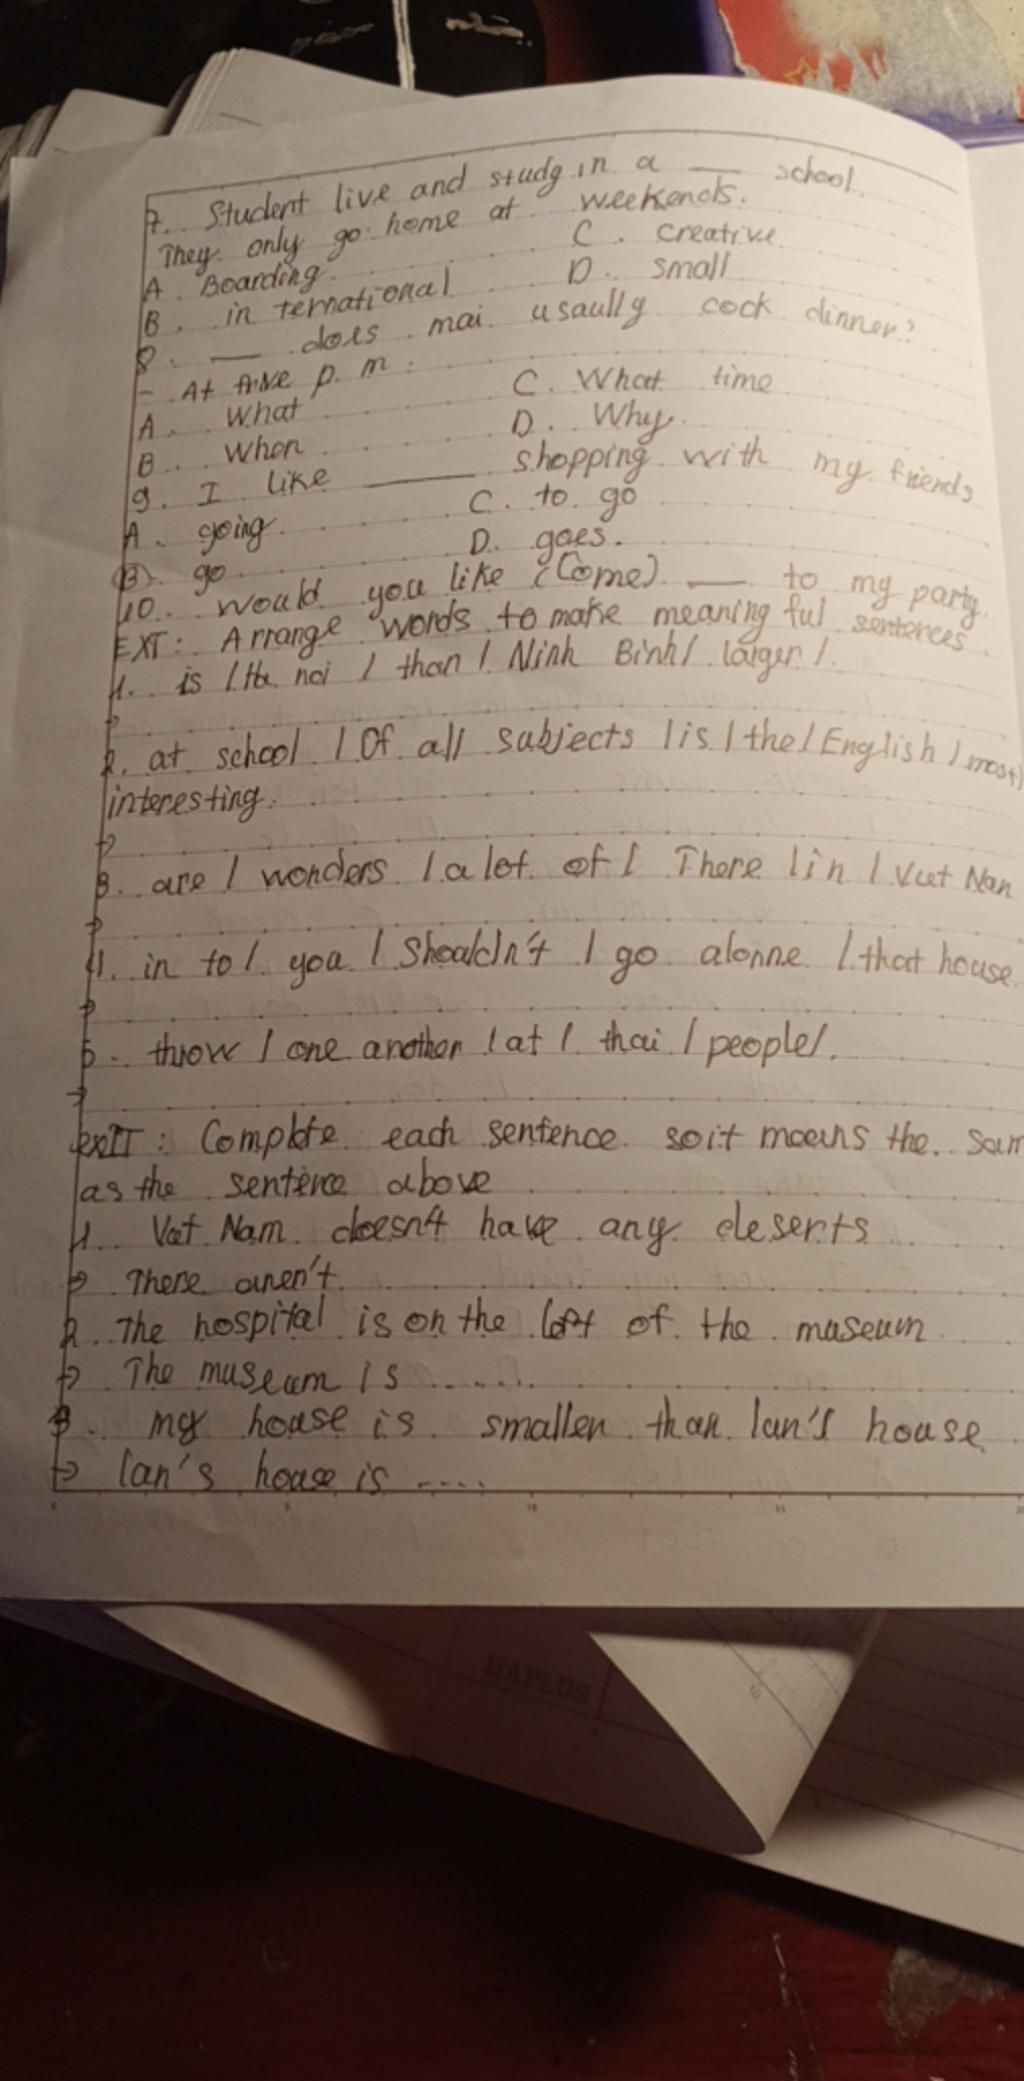 7. Student live and study in a ___ school.
They only go home at weekends.
A. Boarding C. creative
B. in ternational D. small
8. ___ does mai usaully cock dinner?
- At five p.m.
A. What C. What time
B. When D. Why
9. I like ___ shopping with my friends
A. going C. to go
B. go D. goes.
10. would you like (Come) ___ to my party
EXI: Arrange words to make meaning ful sentences.
1. is / Ha noi / than / Ninh Binh / larger /.
2. at school / Of all subjects / is / the / English / most /
interesting.
3. are / wonders / a lot of / There / in / Viet Nan
4. in to / you / Shouldn't / go alonne / that house.
5. throw / one another / at / thai / people /.
exII: Complete each sentence so it means the sam
as the sentence above
1. Viet Nam doesn't have any deserts
There aren't
2. The hospital is on the left of the museum
The museum is .....
3. my house is smaller than lan's house
lan's house is ....
5 10 15 20
HAPLUS